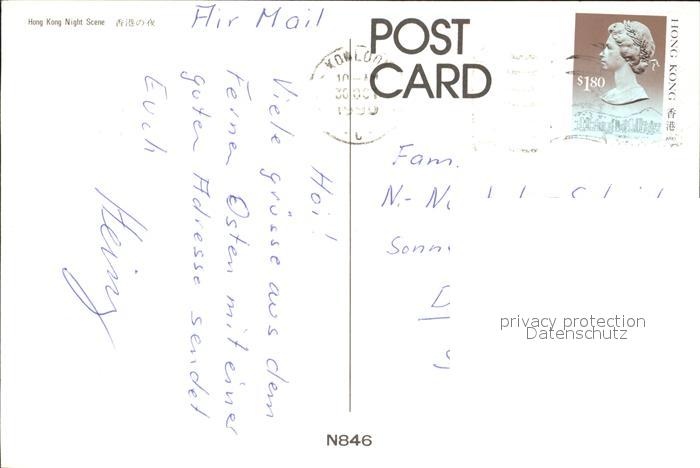 Hong Kong Night Scene 香港の夜
Air Mail
POST
CARD
KOWLOON
HONG KONG 香港
$1.80
Hoi!
Viele grüsse aus dem
Fernen Osten mit einer
guten Adresse sendet
Euch
Heinz
Fam.
N.-N
Sonn
privacy protection
Datenschutz
N846